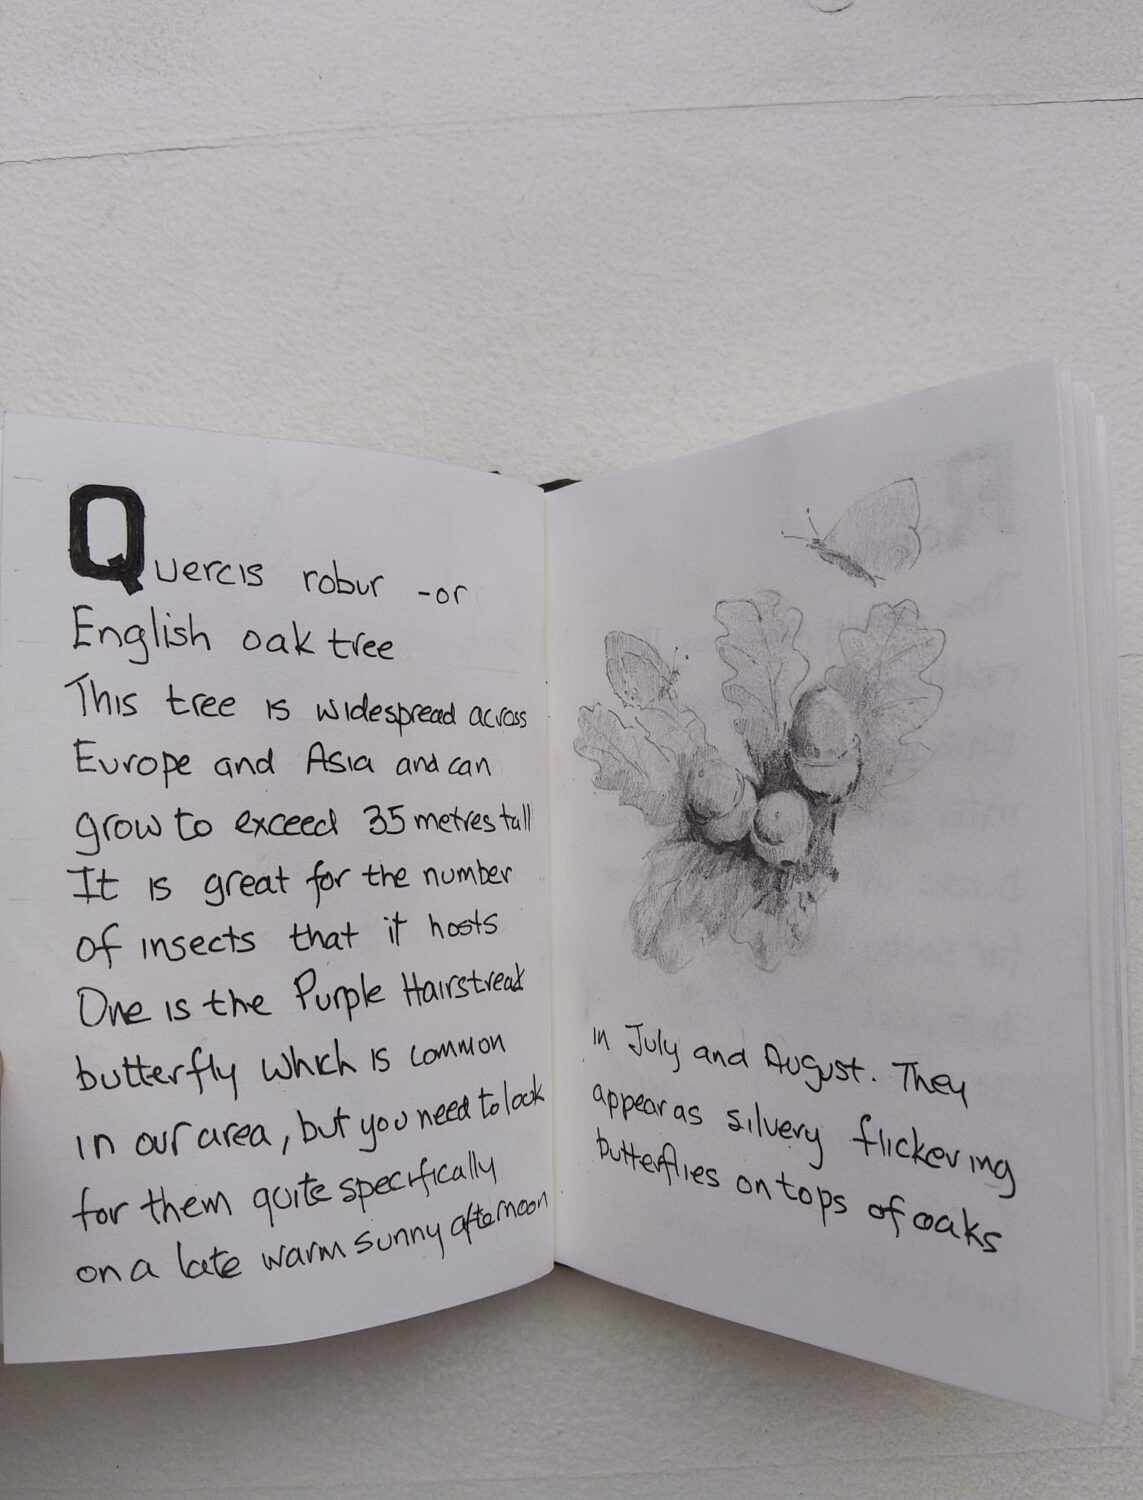 Quercis robur - or
English oak tree
This tree is widespread across
Europe and Asia and can
grow to exceed 35 metres tall
It is great for the number
of insects that it hosts
One is the Purple Hairstreak
butterfly which is common
in our area, but you need to look
for them quite specifically
on a late warm sunny afternoon
in July and August. They
appear as silvery flickering
butterflies on tops of oaks